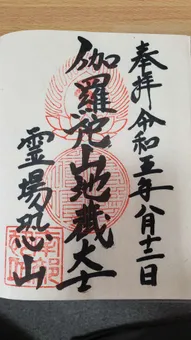 奉拝 令和五年八月十二日
伽羅陀山地蔵大士
霊場恐山